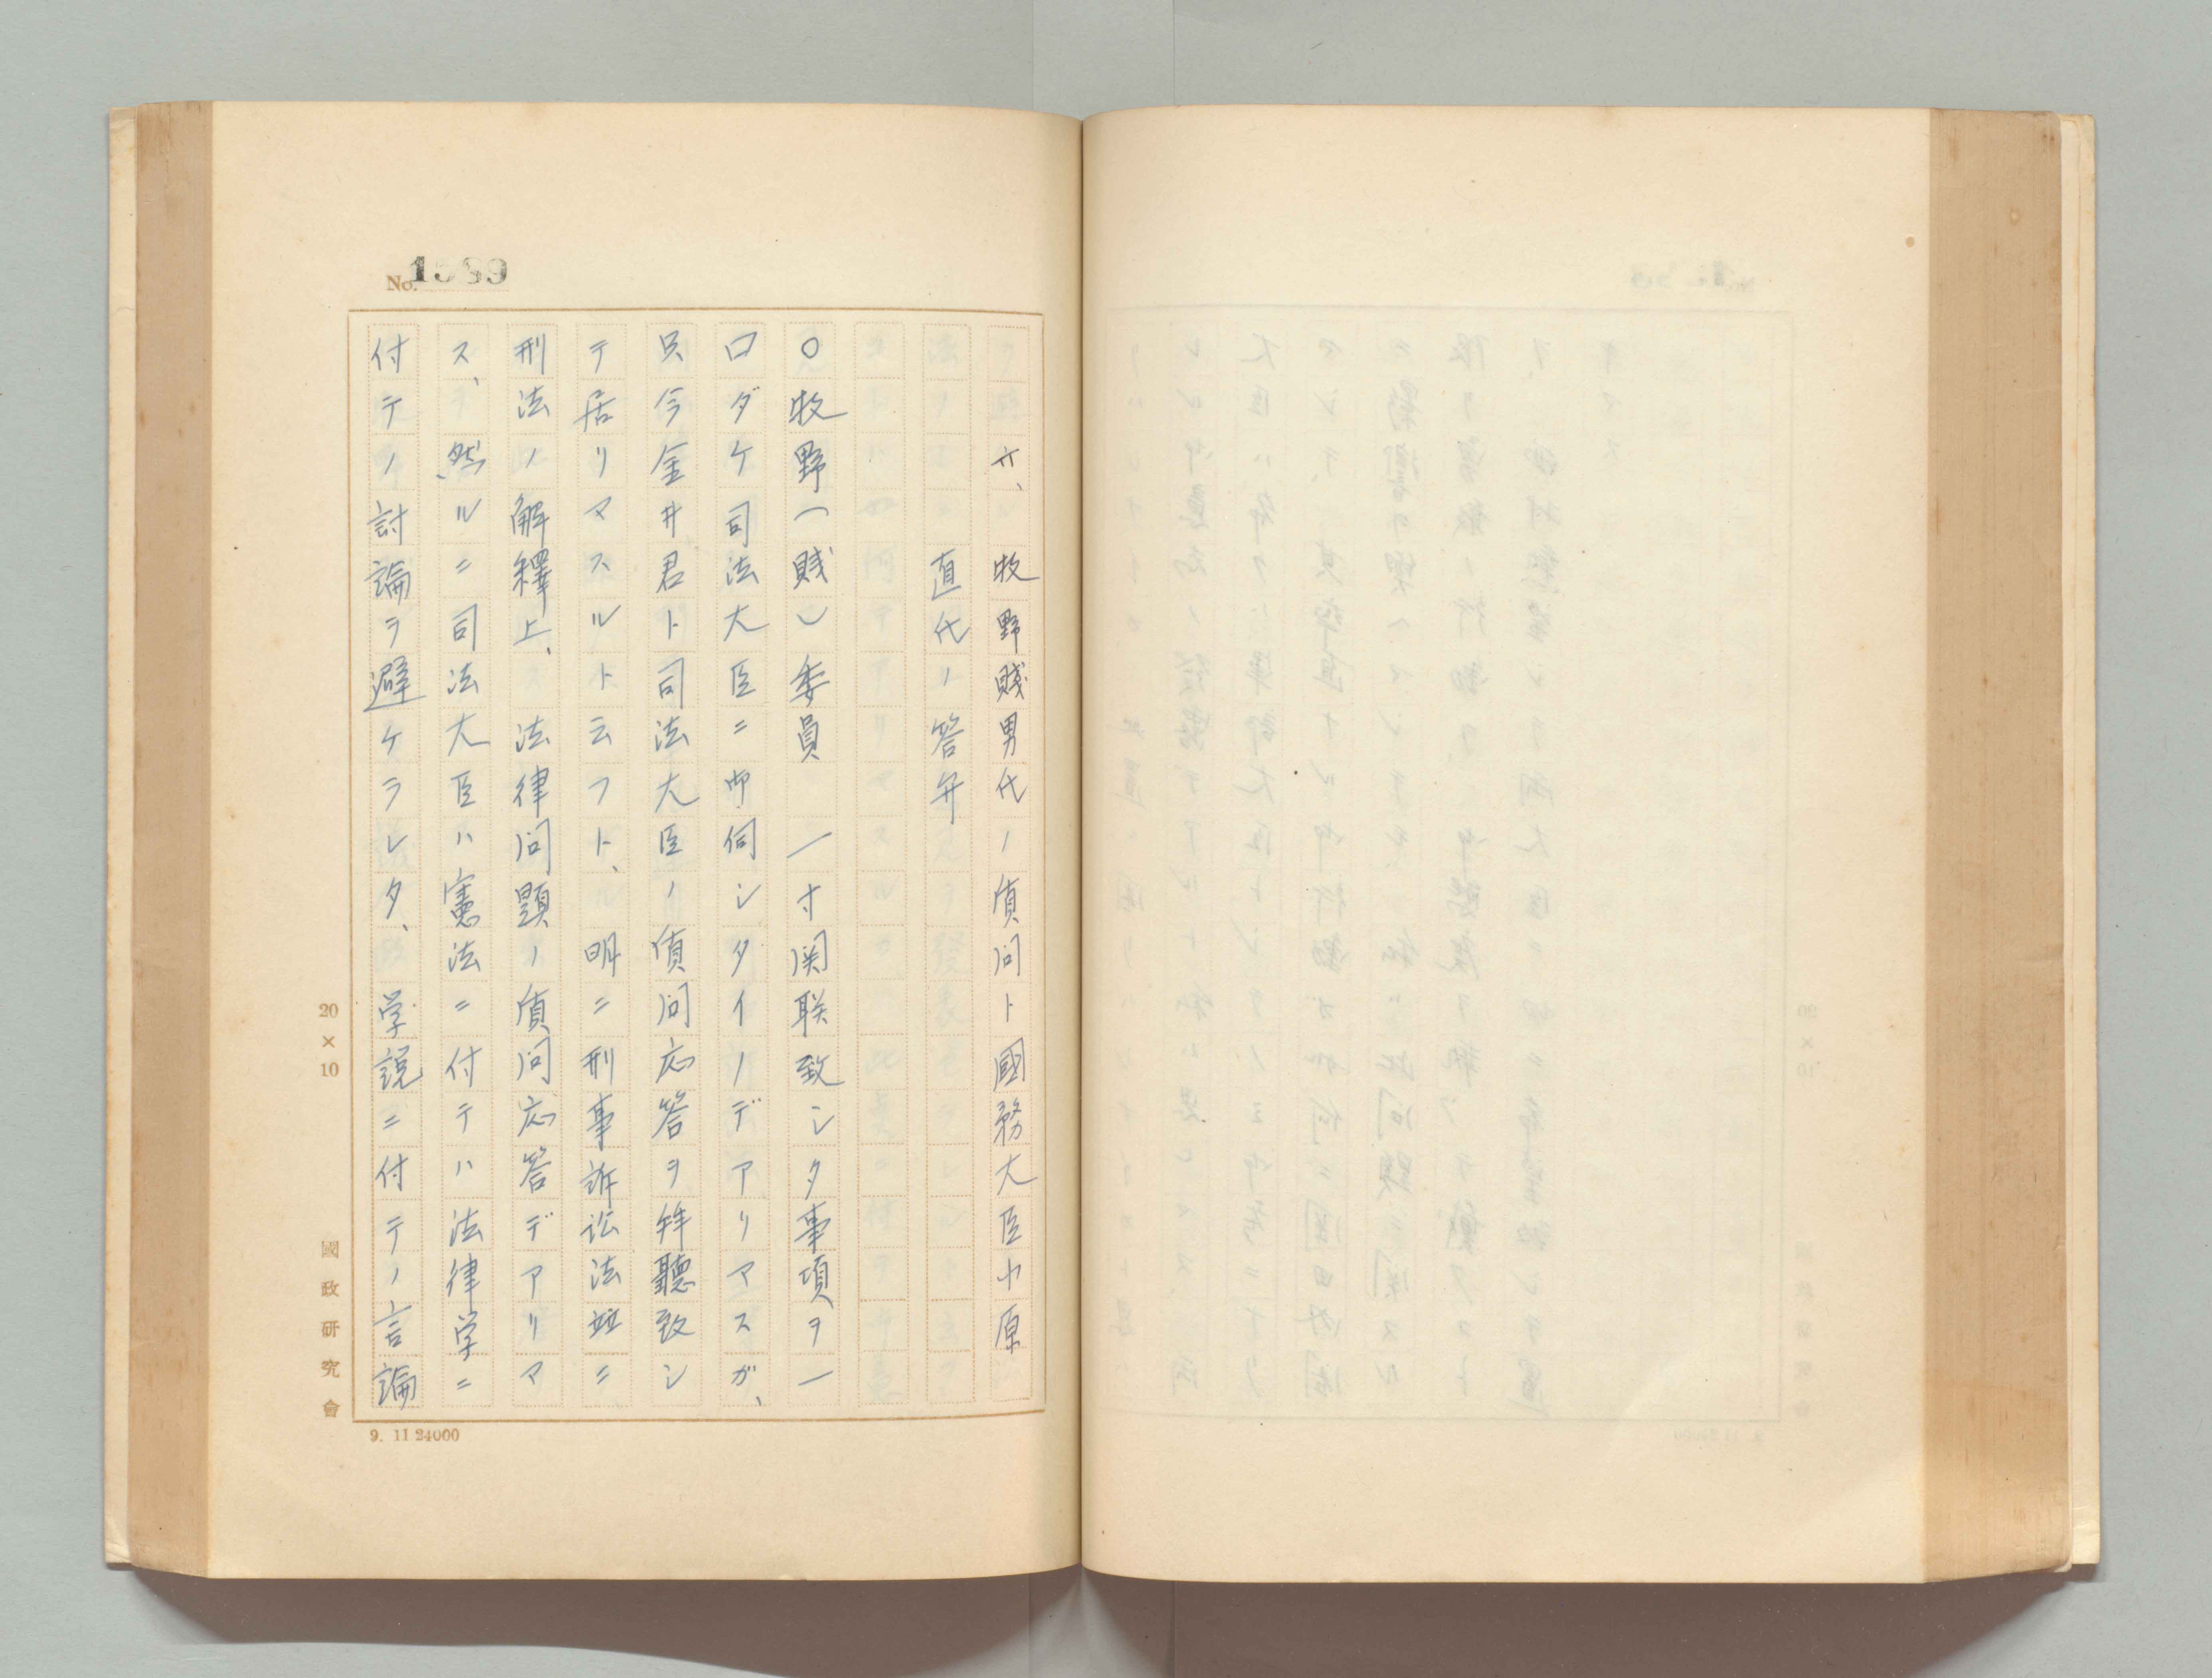 No. 1589
六、牧野賤男代ノ質問ト國務大臣小原
直代ノ答弁
○牧野(賤)委員　一寸関联致シタ事項ヲ一
口ダケ司法大臣ニ御伺シタイノデアリマスガ、
只今金井君ト司法大臣ノ質問応答ヲ拜聽致シ
テ居リマスルト云フト、明ニ刑事訴訟法竝ニ
刑法ノ解釋上、法律問題ノ質問応答デアリマ
ス、然ルニ司法大臣ハ憲法ニ付テハ法律学ニ
付テノ討論ヲ避ケラレタ、学説ニ付テノ言論
20×10
國政研究會
9. 11 24000